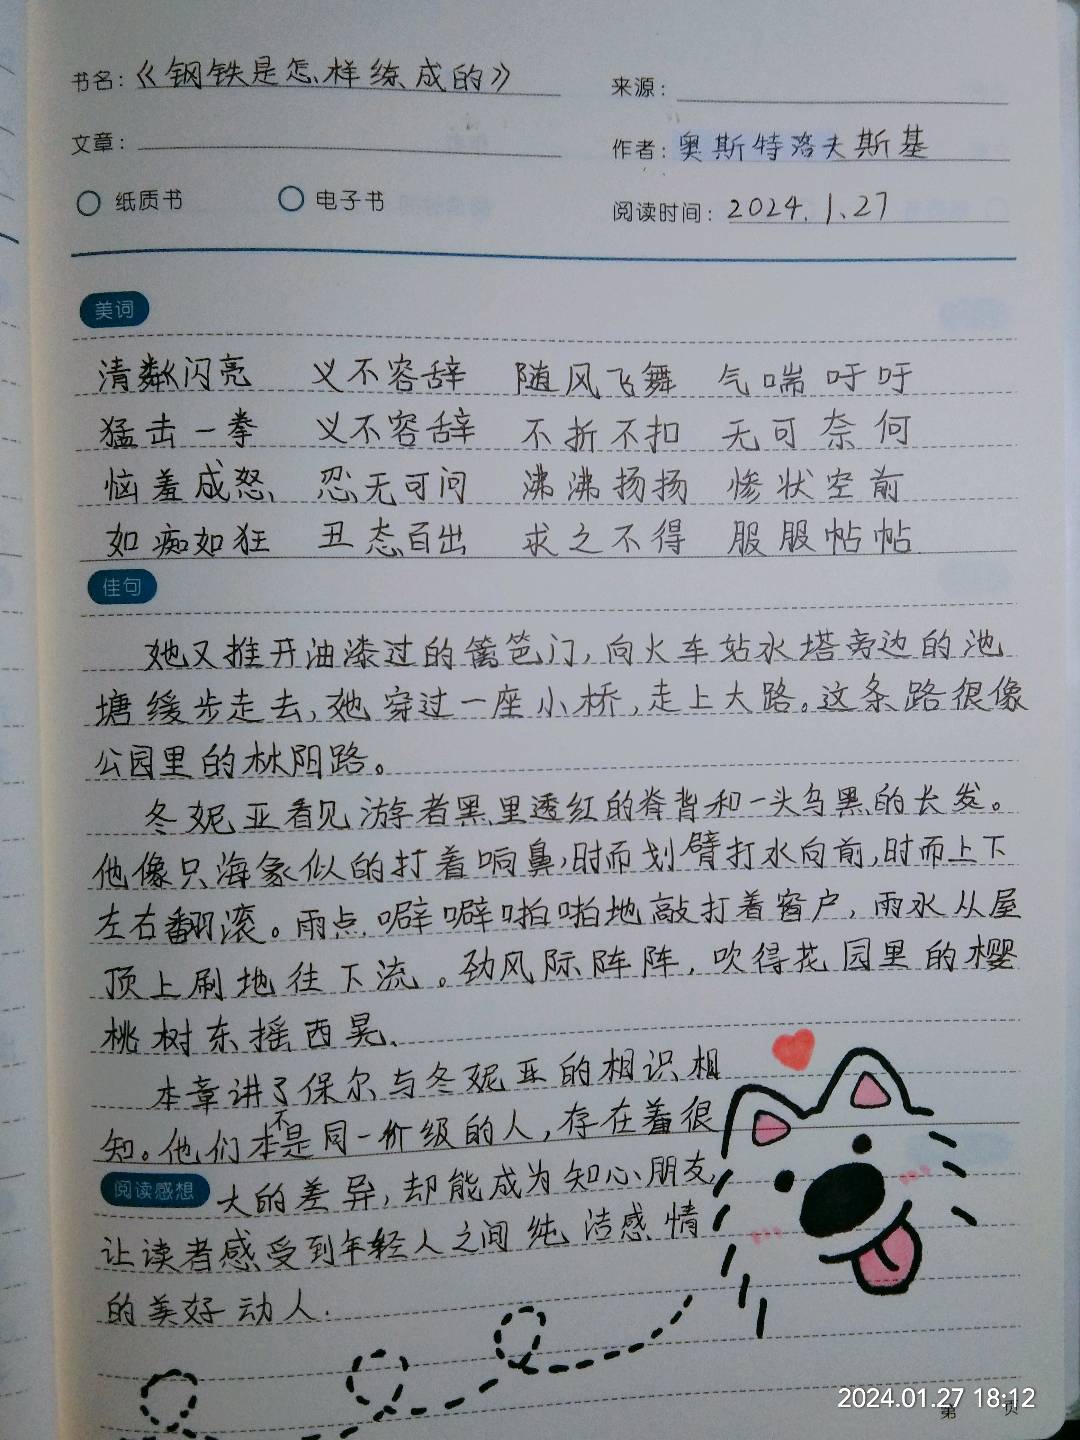 书名：《钢铁是怎样练成的》 来源：
文章： 作者：奥斯特洛夫斯基
纸质书 电子书 阅读时间：2024.1.27
美词
清粼闪亮 义不容辞 随风飞舞 气喘吁吁
猛击一拳 义不容辞 不折不扣 无可奈何
恼羞成怒、 忍无可问 沸沸扬扬 惨状空前
如痴如狂 丑态百出 求之不得 服服帖帖
佳句
她又推开油漆过的篱笆门，向火车站水塔旁边的池
塘缓步走去，她穿过一座小桥，走上大路。这条路很像
公园里的林阴路。
冬妮亚看见游者黑里透红的脊背和一头乌黑的长发。
他像只海象似的打着响鼻，时而划臂打水向前，时而上下
左右翻滚。雨点噼噼啪啪地敲打着窗户，雨水从屋
顶上刷地往下流。劲风际阵阵，吹得花园里的樱
桃树东摇西晃、
本章讲了保尔与冬妮亚的相识相
知。他们本不是同一价级的人，存在着很
阅读感想 大的差异，却能成为知心朋友，
让读者感受到年轻人之间纯洁感情
的美好动人.
2024.01.27 18:12
第 页